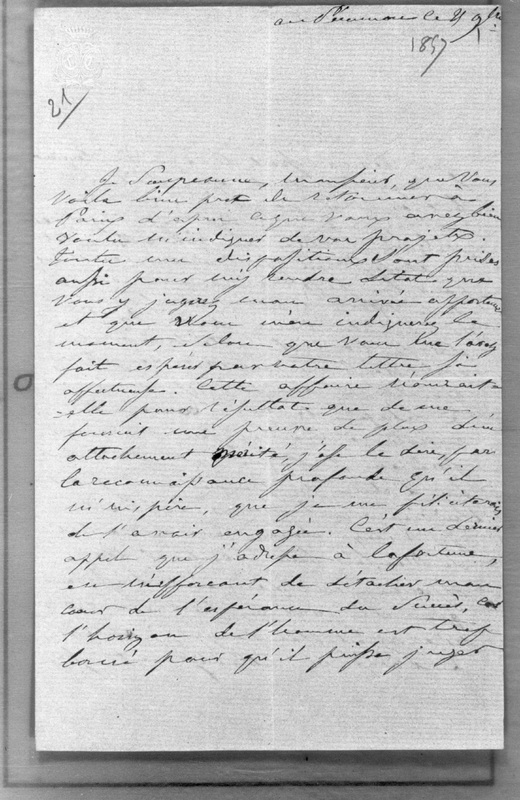 le 21 9bre
1857
21
Je Suppose, Monsieur, que Vous
Voila bien pret de retourner à
Paris d'après ce que vous avez bien
voulu m'indiquer de vos projets.
Toutes mes dispositions sont prises
aussi pour m'y rendre sitot que
Vous y jugerez mon arrivée opportune
et que Vous m'en indiquerez le
moment, Selon que Vous me l'avez
fait espérer par votre lettre si
affectueuse. Cette affaire n'aurait
-elle pour résultat que de me
fournir une preuve de plus d'un
attachement mérité, j'ose le dire, par
la reconnaissance profonde qu'il
m'inspire, que je me féliciterais
de l'avoir engagée. C'est un dernier
appel que j'adresse à la fortune,
en m'efforcant de détacher mon
cœur de l'espérance du Succès, car
l'horizon de l'homme est trop
borné pour qu'il puisse juger